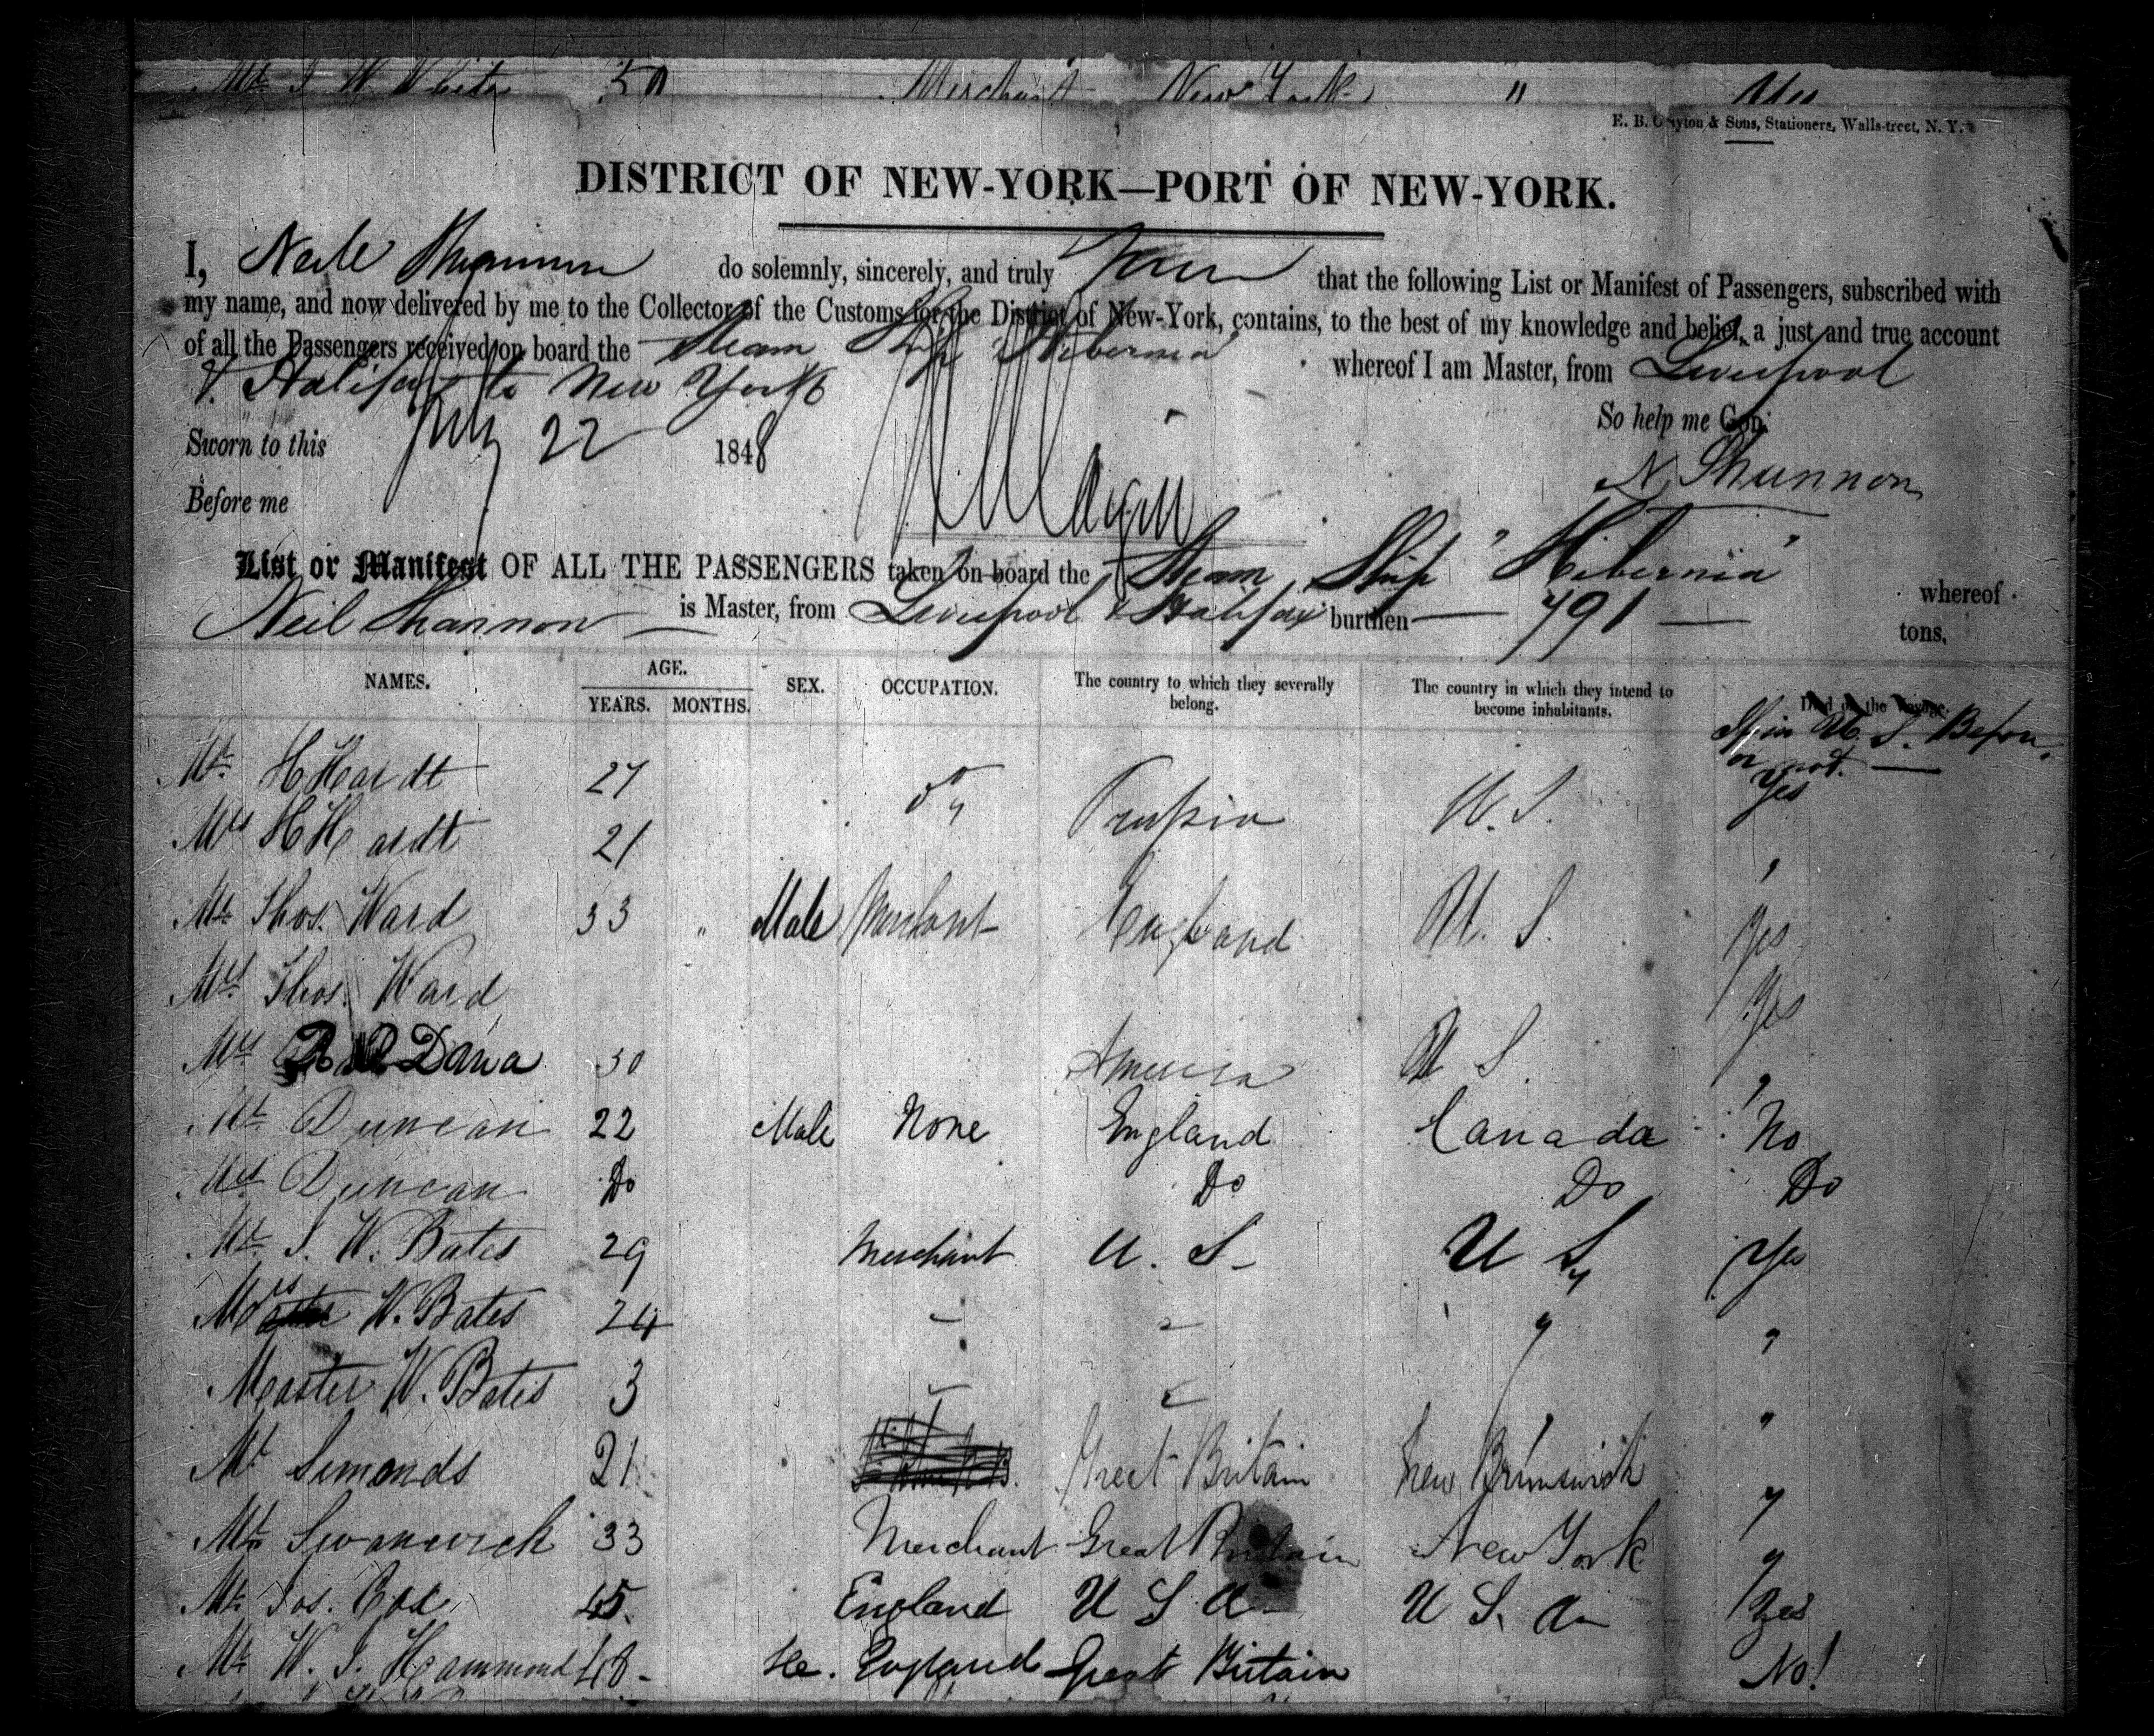 Mr. J. W. White 50 Merchant New York " Yes
E. B. Clayton & Sons, Stationers, Walls-treet, N. Y.
DISTRICT OF NEW-YORK—PORT OF NEW-YORK.
I, Neile Shannon do solemnly, sincerely, and truly swear that the following List or Manifest of Passengers, subscribed with
my name, and now delivered by me to the Collector of the Customs for the District of New-York, contains, to the best of my knowledge and belief, a just and true account
of all the Passengers received on board the Steam Ship "Hibernia" whereof I am Master, from Liverpool
& Halifax to New York
So help me God.
Sworn to this July 22 1848
N Shannon
Before me
List or Manifest OF ALL THE PASSENGERS taken on board the Steam Ship "Hibernia" whereof
Neil Shannon is Master, from Liverpool & Halifax burthen 791 tons,
NAMES. AGE. YEARS. MONTHS. SEX. OCCUPATION. The country to which they severally belong. The country in which they intend to become inhabitants. Died on the Voyage.
If in U. S. Before or not.
Mr. H Hardt 27 Prussia U. S. Yes
Mrs H Hardt 21 "
Mr. Thos. Ward 33 " Male Merchant England U. S. Yes
Mrs. Thos. Ward Yes
Mrs Dana 30 America U S. "
Mr Duncan 22 Male None England Canada No
Mrs Duncan Do Do Do Do
Mr. J. W. Bates 29 Merchant U. S- U S, Yes
Mrs W. Bates 24 - - " "
Master W. Bates 3 - - " "
Mr Simonds 21 Great Britain New Brunswick "
Mr Swanwick 33 Merchant Great Britain New York "
Mr. Jos. Cox 45. England U S a- U S. a- Yes
Mr W. J. Hammond 48- He. England Great Britain No!